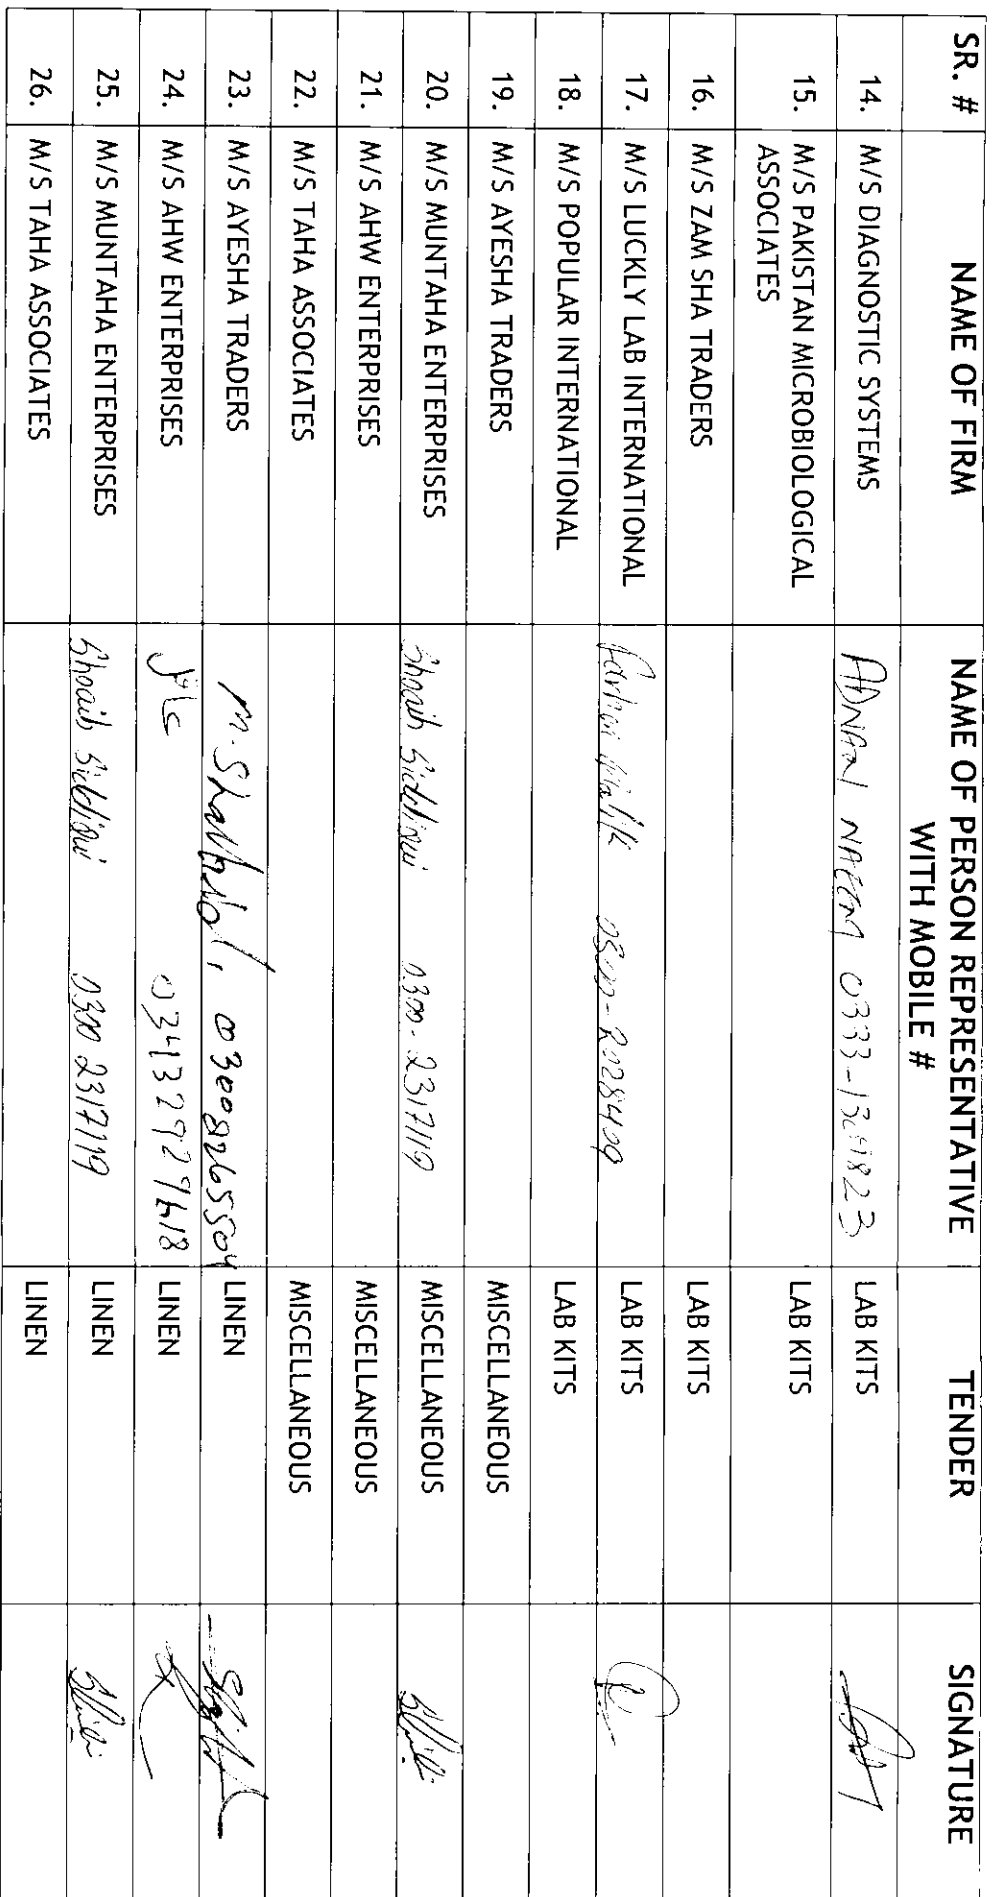 SR. # NAME OF FIRM NAME OF PERSON REPRESENTATIVE WITH MOBILE # TENDER SIGNATURE
14. M/S DIAGNOSTIC SYSTEMS ADNAN NAEEM 0333- LAB KITS
15. M/S PAKISTAN MICROBIOLOGICAL ASSOCIATES LAB KITS
16. M/S ZAM SHA TRADERS LAB KITS
17. M/S LUCKLY LAB INTERNATIONAL Farhan Malik 0300-2028409 LAB KITS
18. M/S POPULAR INTERNATIONAL LAB KITS
19. M/S AYESHA TRADERS MISCELLANEOUS
20. M/S MUNTAHA ENTERPRISES Shoaib Siddiqui 0300-2317119 MISCELLANEOUS
21. M/S AHW ENTERPRISES MISCELLANEOUS
22. M/S TAHA ASSOCIATES MISCELLANEOUS
23. M/S AYESHA TRADERS M. 03008265504 LINEN
24. M/S AHW ENTERPRISES LINEN
25. M/S MUNTAHA ENTERPRISES Shoaib Siddiqui 0300 2317119 LINEN
26. M/S TAHA ASSOCIATES LINEN